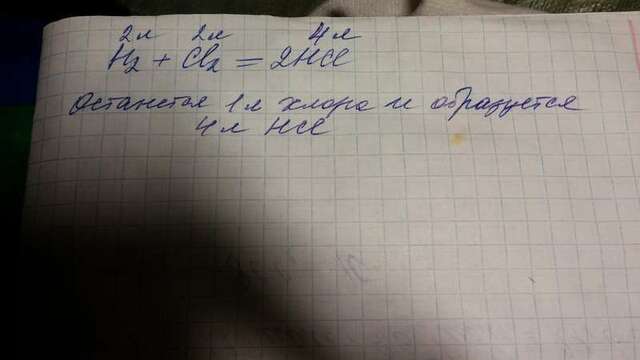 2л 2л 4л
H2 + Cl2 = 2HCl
Останется 1л хлора и образуется
4л HCl